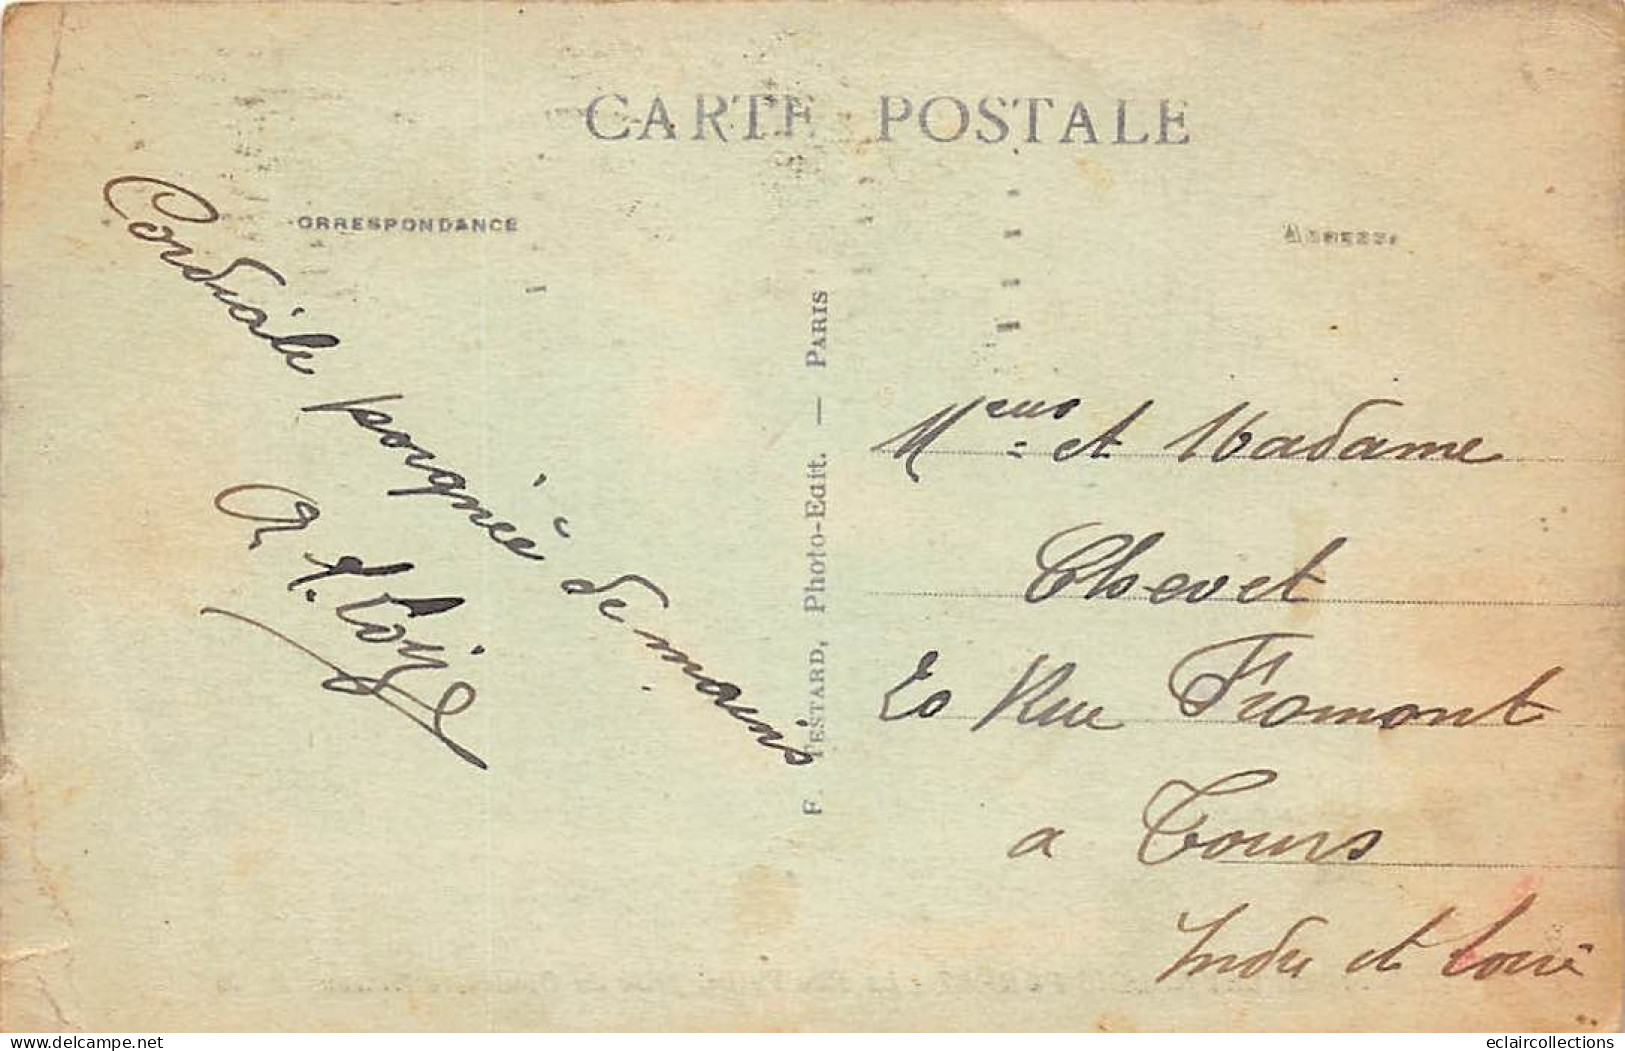 CARTE POSTALE
ORRESPONDANCE
ADRESSE
Cordiale poignée de mains
F. TESTARD, Photo-Edit. — PARIS
et Madame
Chevet
Rue Fromont
a Tours
Indre et Loire
eclaircollections